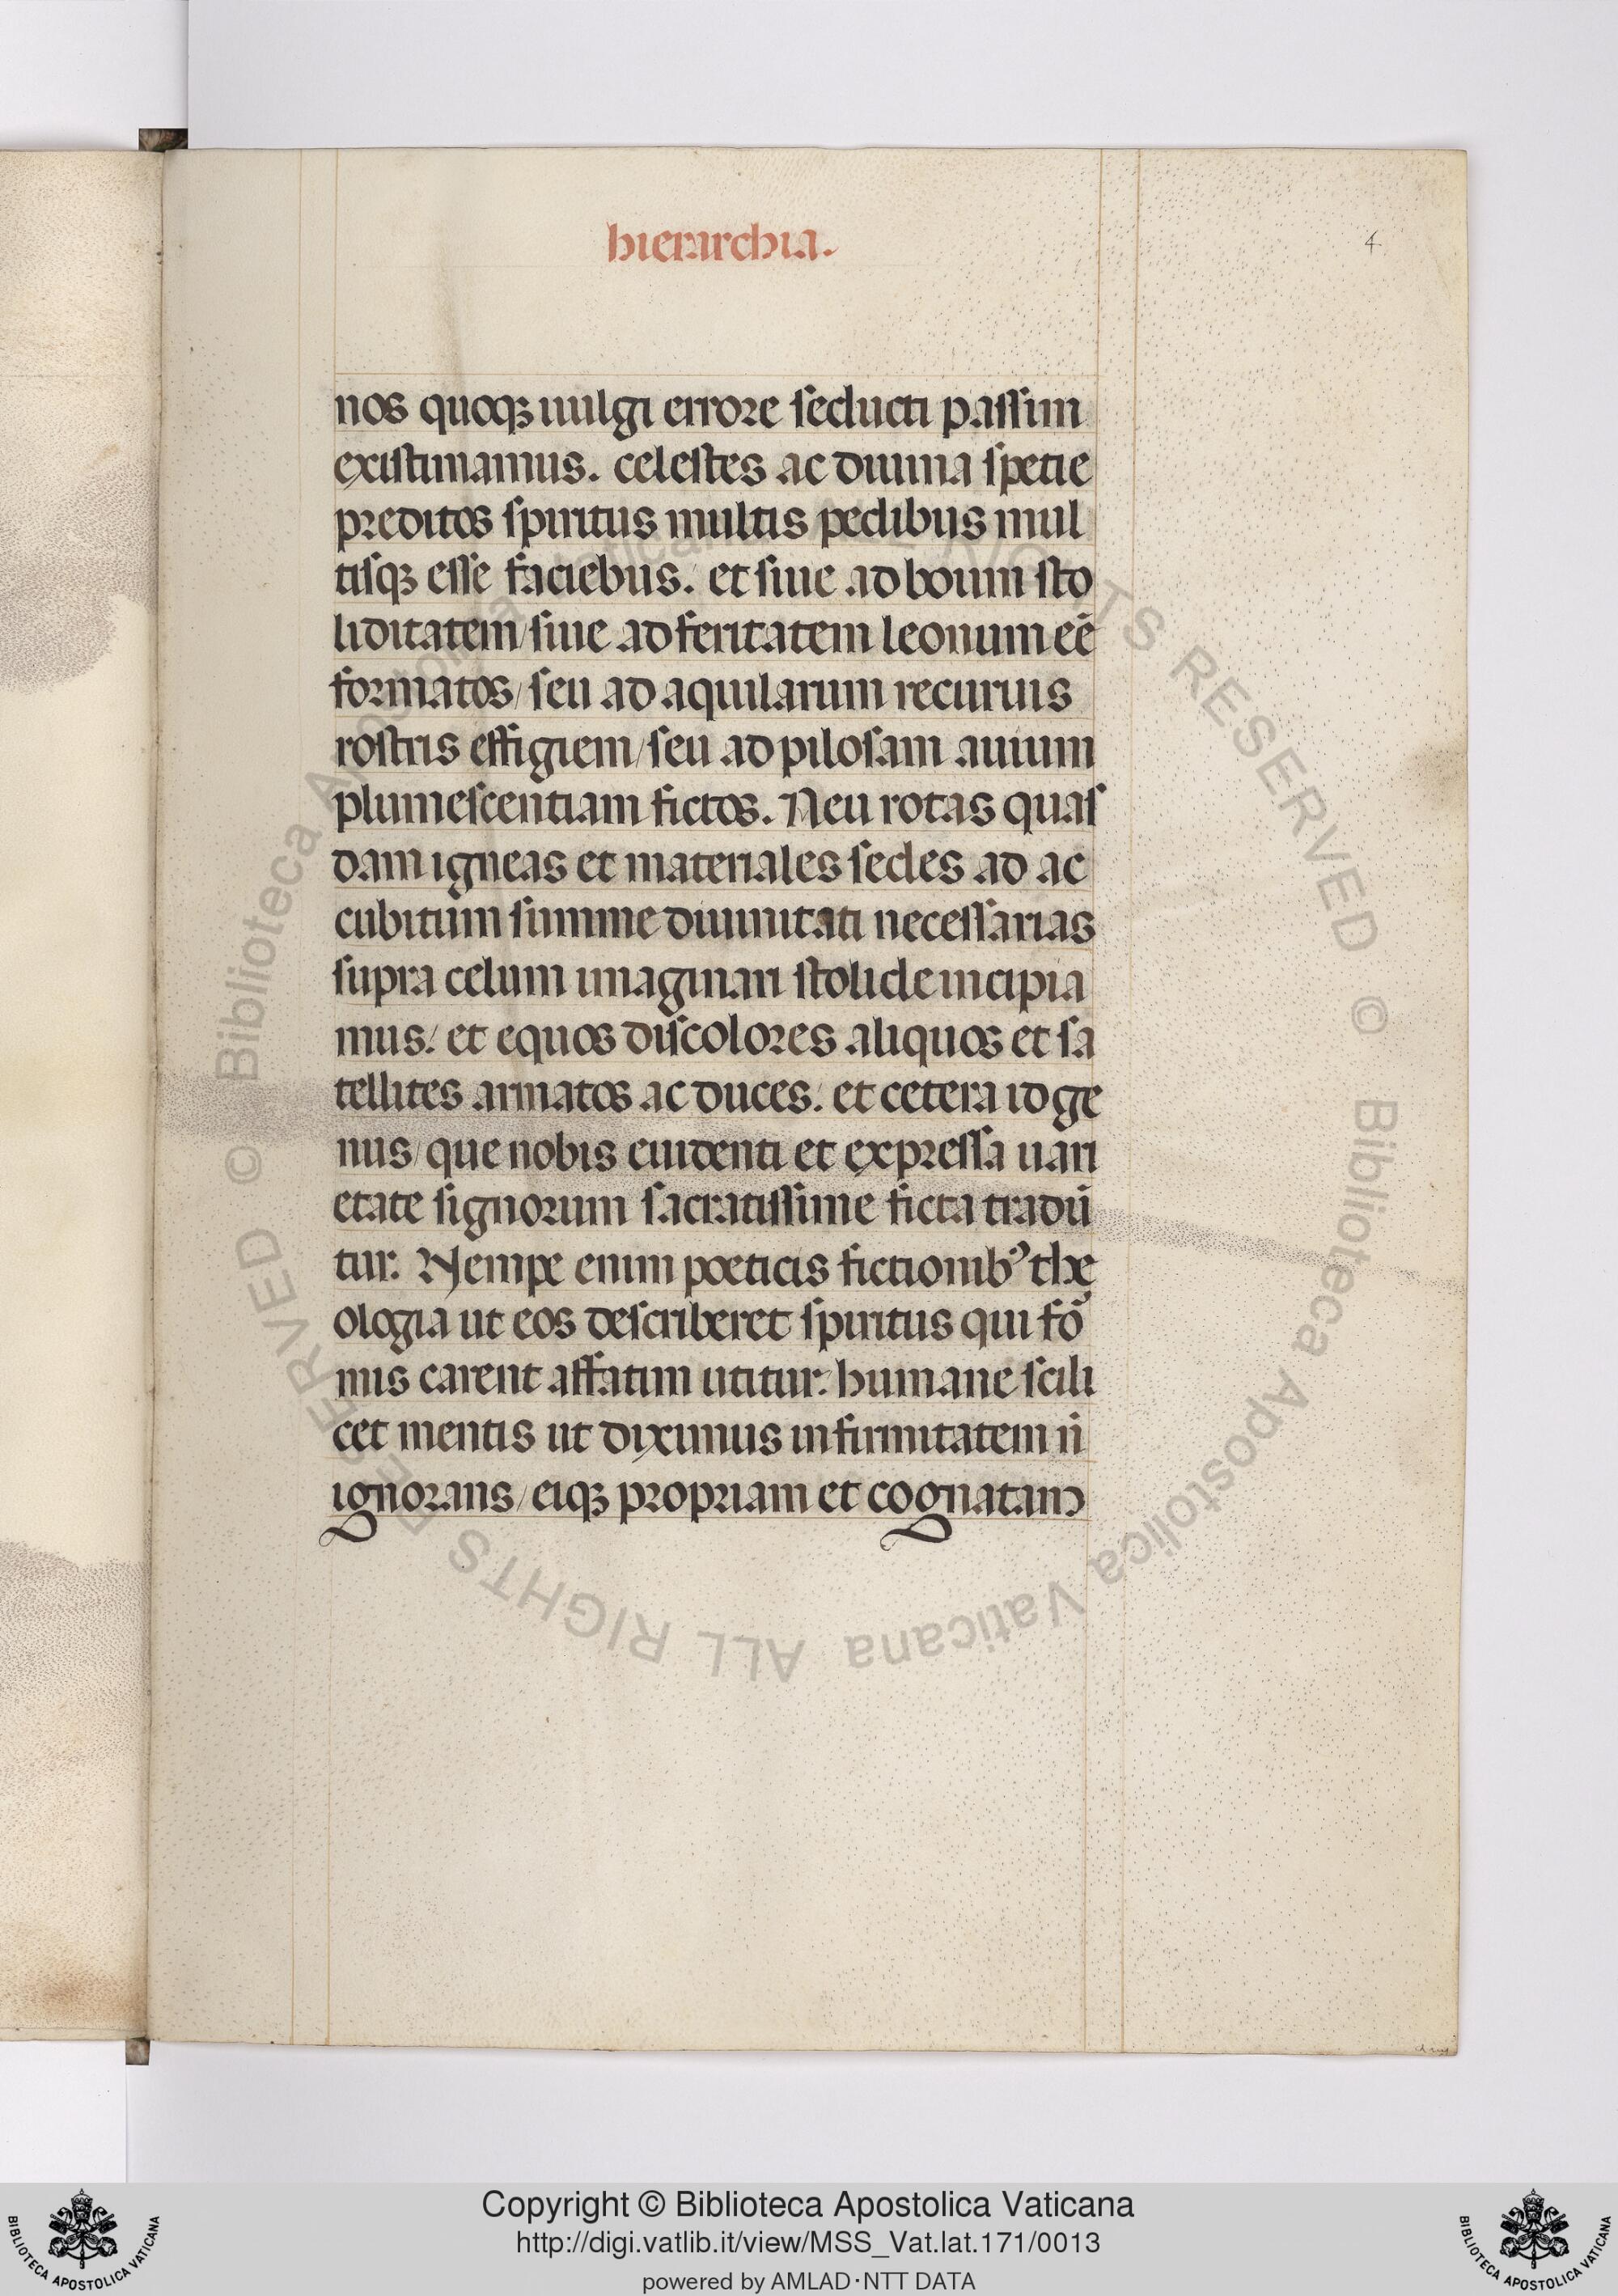 hierarchia.
4
nos quoqꝫ uulgi errore seducti passim
existimamus. celestes ac diuina spetie
preditos spiritus multis pedibus mul
tisqꝫ esse faciebus. et siue ad boum sto
liditatem/ siue ad feritatem leonum eē
formatos/ seu ad aquilarum recuruis
rostris effigiem/ seu ad pilosam auium
plumescentiam fictos. Neu rotas quas
dam igneas et materiales sedes ad ac
cubitum summe diuinitati necessarias
supra celum imaginari stolide incipia
mus: et equos discolores aliquos et sa
tellites armatos ac duces: et cetera id ge
nus/ que nobis euidenti et expressa uari
etate signorum sacratissime ficta tradū
tur. Nempe enim poeticis fictionibꝰ the
ologia ut eos describeret spiritus qui for
mis carent affatim utitur: humane scili
cet mentis ut diximus infirmitatem n̄
ignorans/ eiqꝫ propriam et cognatam
© Biblioteca Apostolica Vaticana ALL RIGHTS RESERVED
© Biblioteca Apostolica Vaticana ALL RIGHTS RESERVED
Copyright © Biblioteca Apostolica Vaticana
http://digi.vatlib.it/view/MSS_Vat.lat.171/0013
powered by AMLAD·NTT DATA
BIBLIOTECA APOSTOLICA VATICANA
BIBLIOTECA APOSTOLICA VATICANA